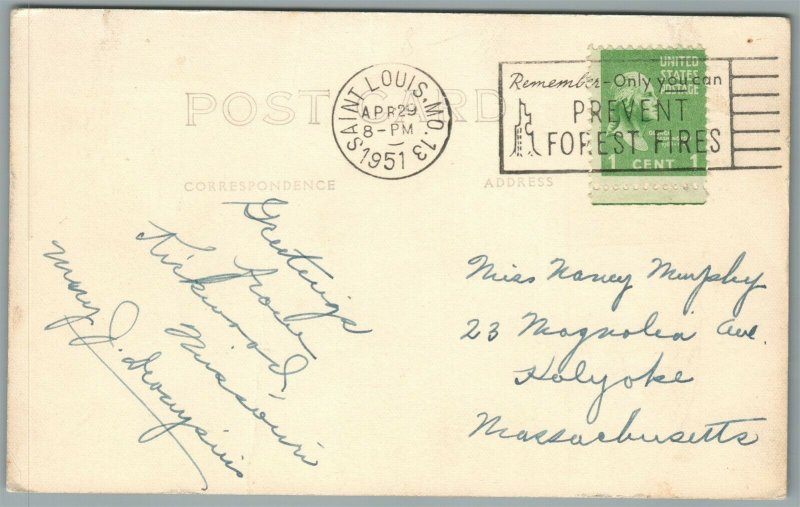 POST CARD
SAINT LOUIS, MO. 13
APR 29
8-PM
1951
Remember-Only you can
PREVENT
FOREST FIRES
UNITED
STATES
POSTAGE
1 CENT 1
CORRESPONDENCE
ADDRESS
Greetings
from
Kirkwood,
Missouri
Mary J.
Miss Nancy Murphy
23 Magnolia Ave.
Holyoke
Massachusetts